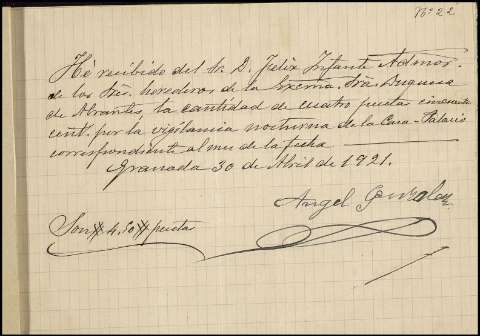 Nº 22
Hé recibido del Sr. D. Felix Infante Admor.
de los Srs. herederos de la Excma. Sra. Duquesa
de Abrantes, la cantidad de cuatro pesetas cincuenta
cent. por la vigilancia nocturna de la Casa-Palacio
correspondiente al mes de la fecha
Granada 30 de Abril de 1921.
Angel Gonzalez
Son # 4,50 # pesetas